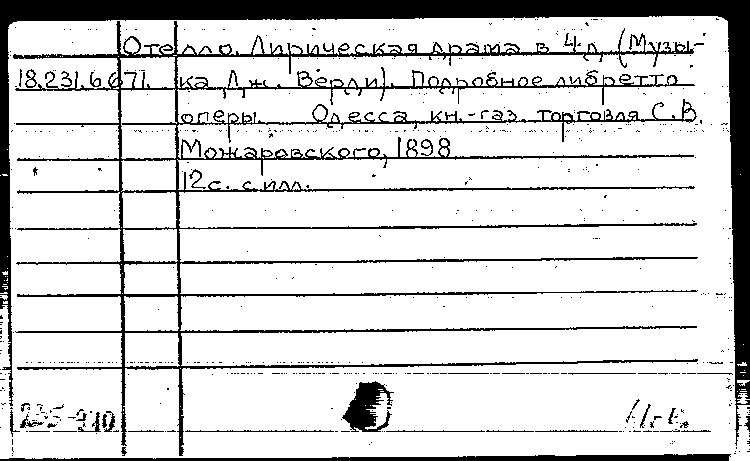 Отелло. Лирическая драма в 4 д. (Музы-
18.231.6.671. ка Дж. Верди). Подробное либретто
оперы. Одесса, кн.-газ. торговля С.В.
Можаровского, 1898
12 с. с илл.
235-910